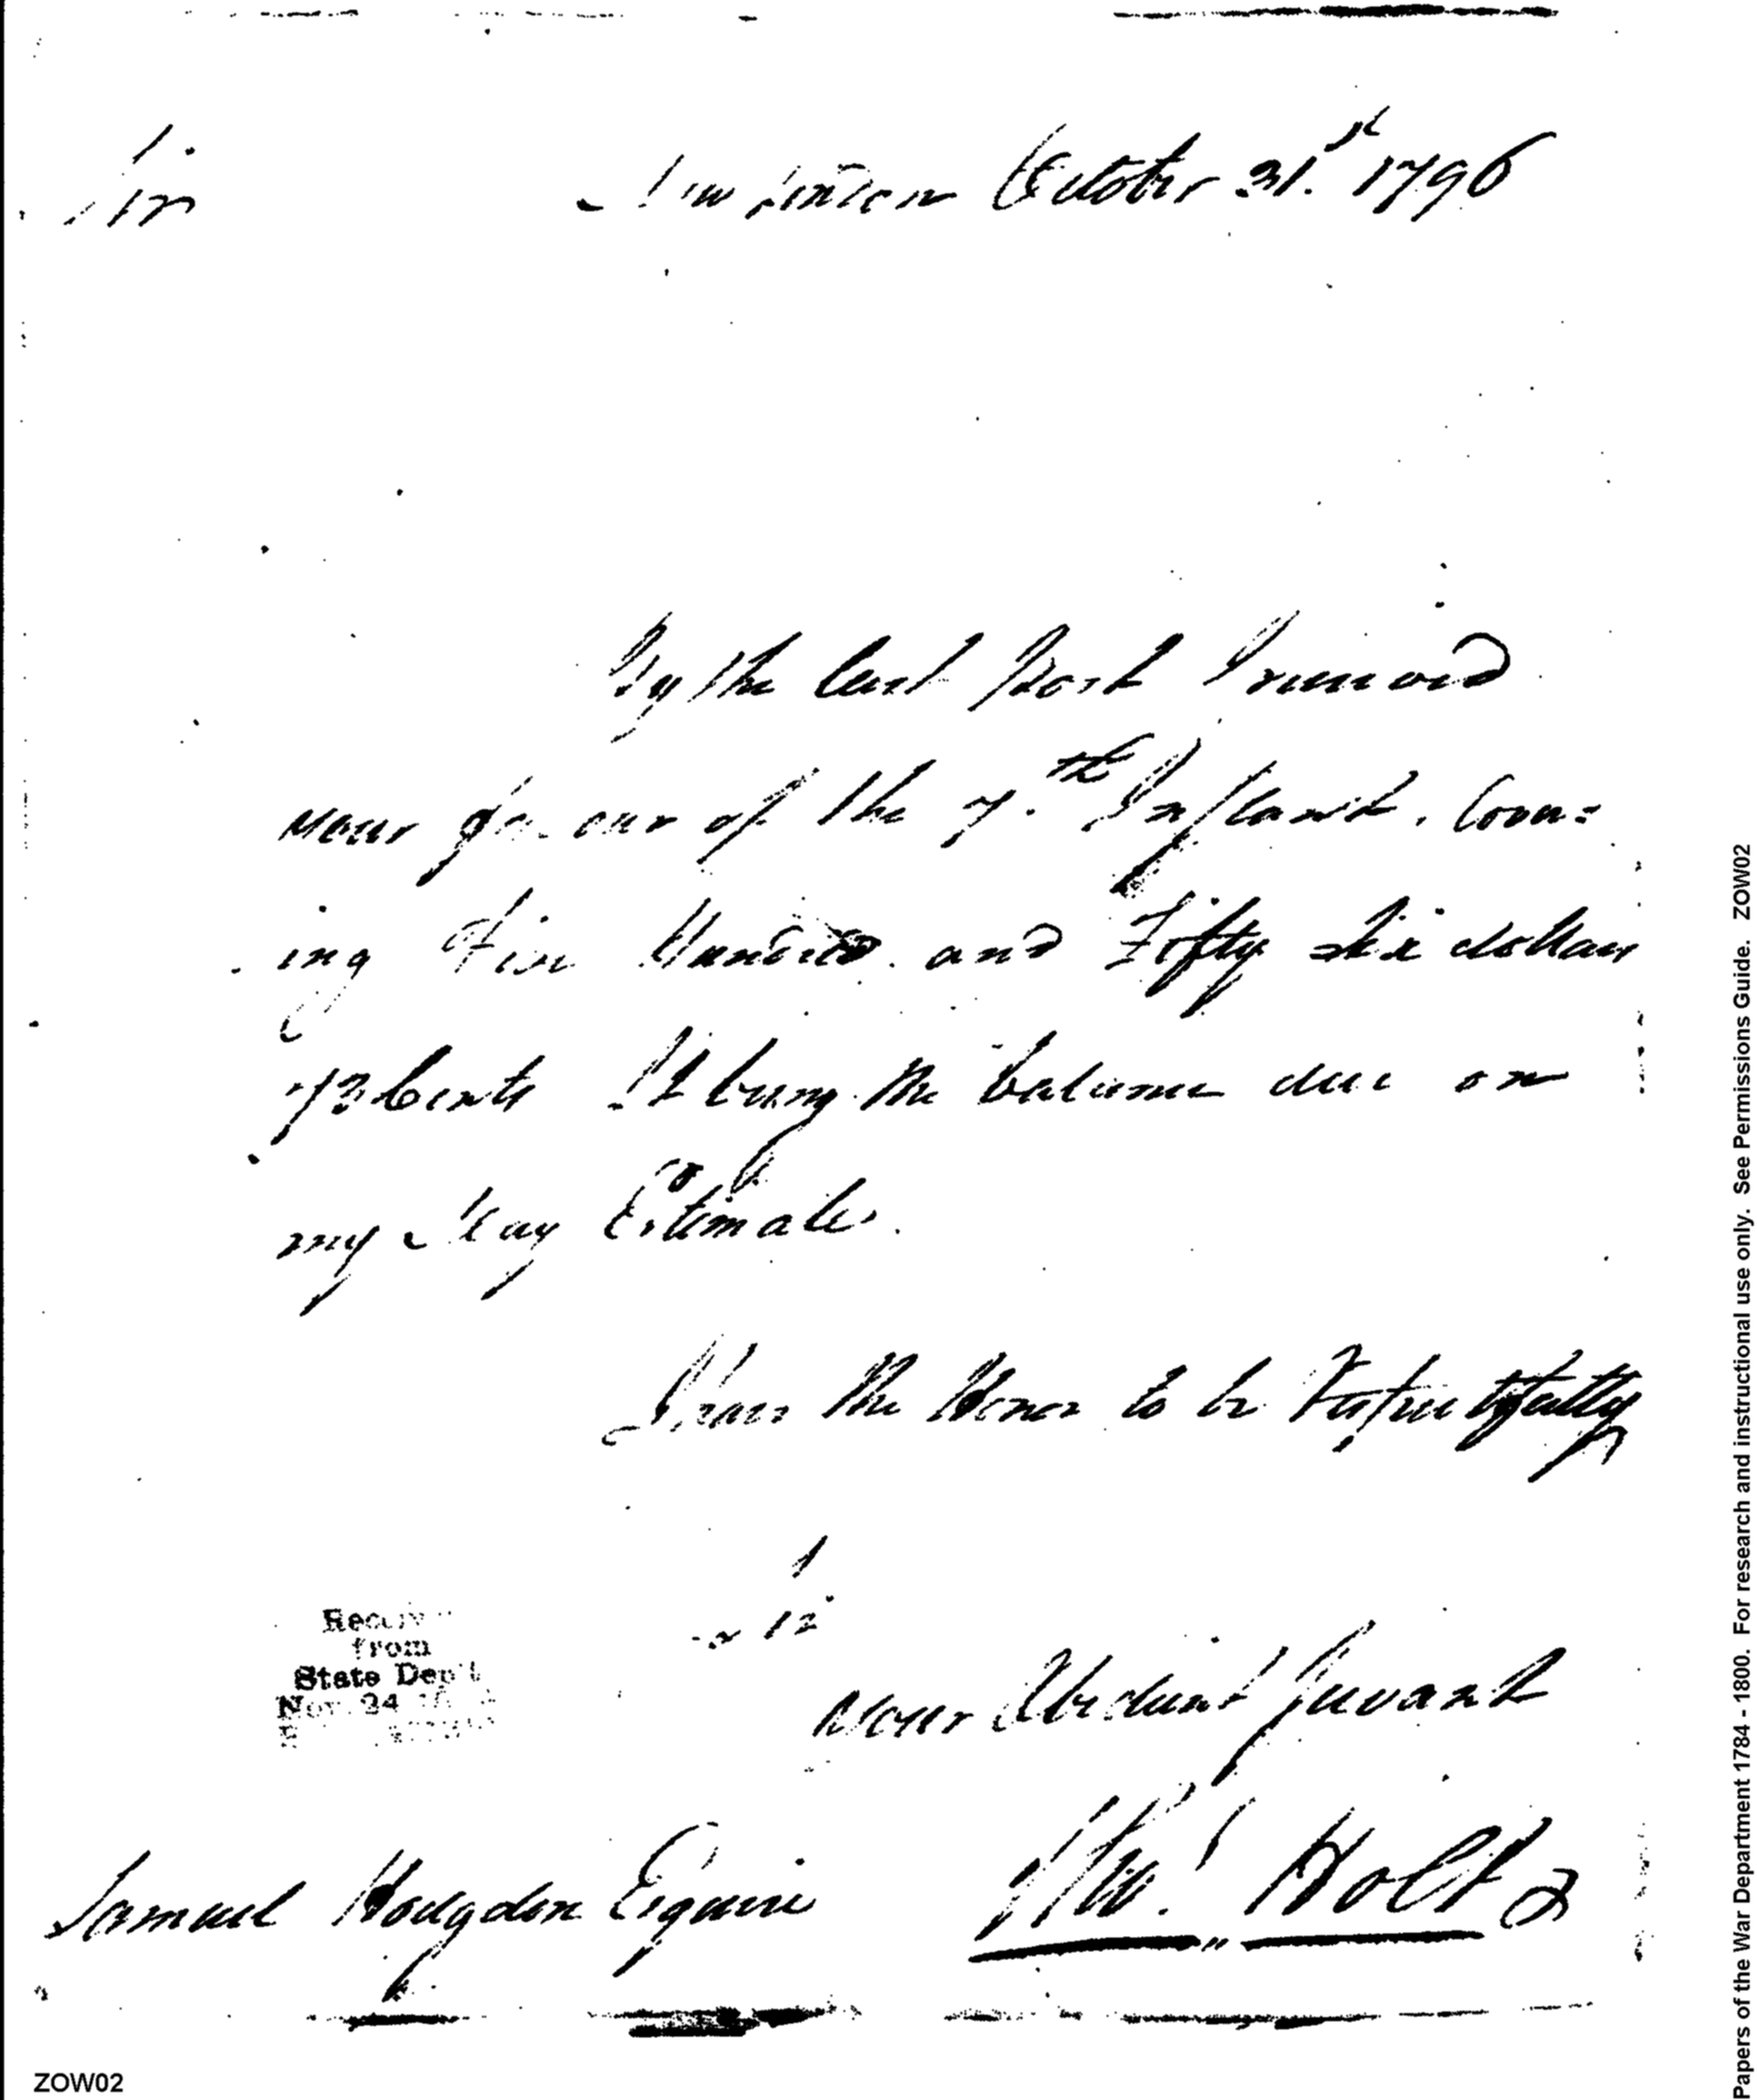 Sir
New London October 31.st 1796
By the last Post I received
your favour of the 7.th Instant. Cover=
ing Five Hundred and Fifty Six dollars
73 Cents It being the balance due on
my May Estimate.
I have the Honor to be Respectfully
Sir
your Obedient Servant
Holt
Samuel Hodgdon Esquire
from
State Dep't
Nov. 24
ZOW02
Papers of the War Department 1784 - 1800. For research and instructional use only. See Permissions Guide. ZOW02